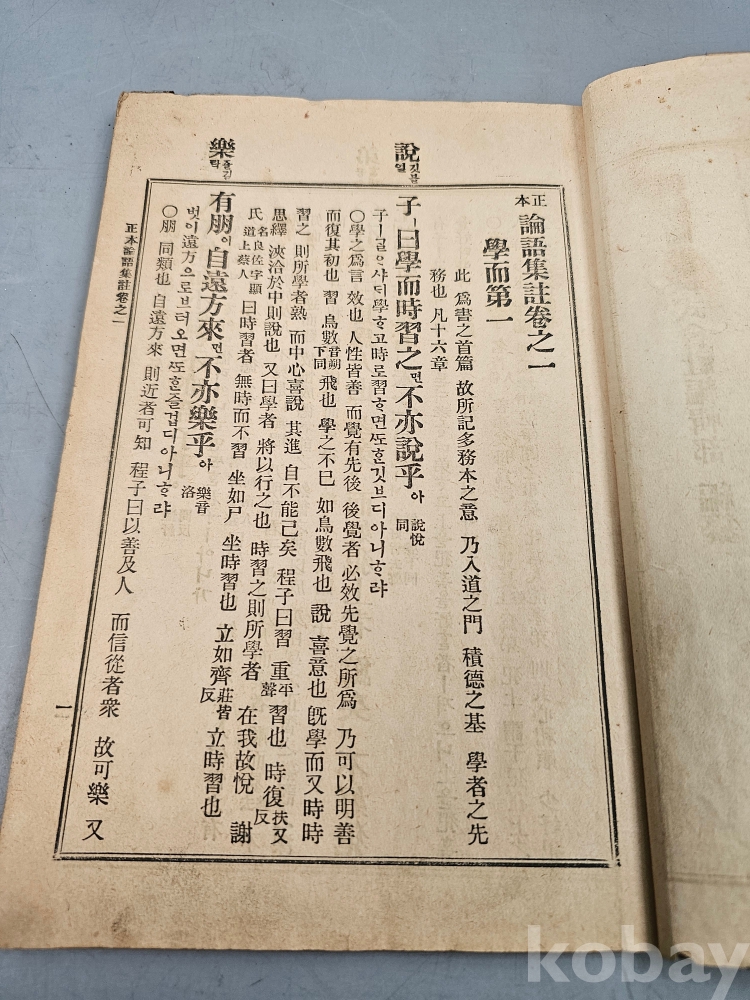 說 깃블 열
樂 즐길 락
正本 論語集註卷之一
學而第一
此 爲書之首篇 故所記多務本之意 乃入道之門 積德之基 學者之先
務也 凡十六章
子ㅣ曰學而時習之면不亦說乎아 說悅同
子ㅣᄀᆞᆯᄋᆞ샤ᄃᆡ學ᄒᆞ고時로習ᄒᆞ면ᄯᅩᄒᆞᆫ깃브디아니ᄒᆞ랴
○學之爲言 效也 人性皆善 而覺有先後 後覺者 必效先覺之所爲 乃可以明善
而復其初也 習 鳥數音朔下同飛也 學之不已 如鳥數飛也 說 喜意也 旣學而又時時
習之 則所學者熟 而中心喜說 其進 自不能已矣 程子曰習 重平聲習也 時復扶又反
思繹 浹洽於中則說也 又曰學者 將以行之也 時習之則所學者 在我故悅 謝
氏名良佐字顯道上蔡人曰時習者 無時而不習 坐如尸 坐時習也 立如齊莊皆反立時習也
有朋이自遠方來면不亦樂乎아 樂音洛
벗이遠方으로브터오면ᄯᅩᄒᆞᆫ즐겁디아니ᄒᆞ랴
○朋 同類也 自遠方來 則近者可知 程子曰以善及人 而信從者衆 故可樂 又
正本論語集註卷之一
一
kobay